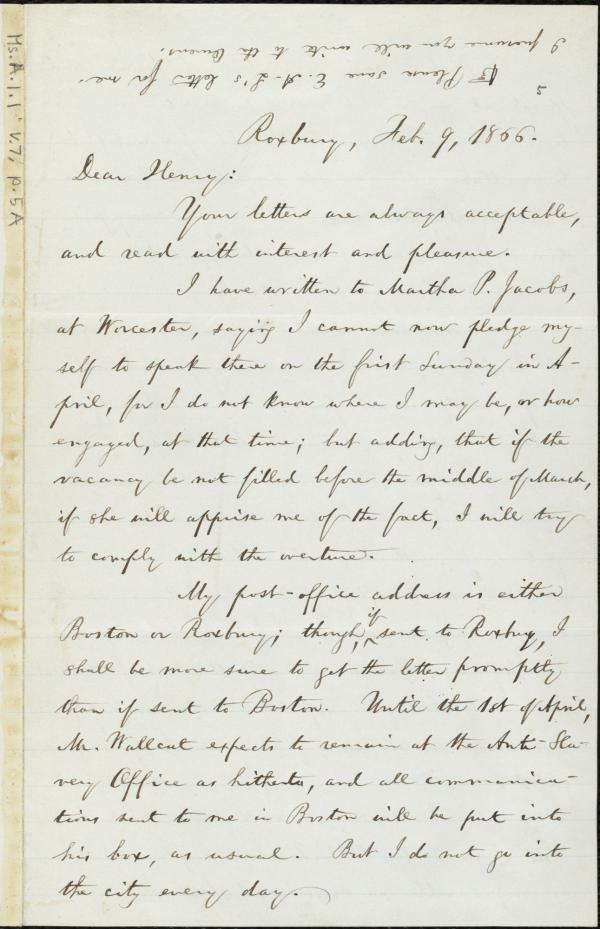 ☞ Please save E. A. L's letter for me.
I presume you will write to the Curtises.
5
Ms. A. 1. 1 v. 7, p. 5A
Roxbury, Feb. 9, 1866.
Dear Henry:
Your letters are always acceptable,
and read with interest and pleasure.
I have written to Martha P. Jacobs,
at Worcester, saying I cannot now pledge my-
self to speak there on the first Sunday in A-
pril, for I do not know where I may be, or how
engaged, at that time; but adding, that if the
vacancy be not filled before the middle of March,
if she will apprise me of the fact, I will try
to comply with the overture.
My post-office address is either
Boston or Roxbury; though, if sent to Roxbury, I
shall be more sure to get the letter promptly
than if sent to Boston. Until the 1st of April,
Mr. Wallcut expects to remain at the Anti-Sla-
very Office as hitherto, and all communica-
tions sent to me in Boston will be put into
his box, as usual. But I do not go into
the city every day.